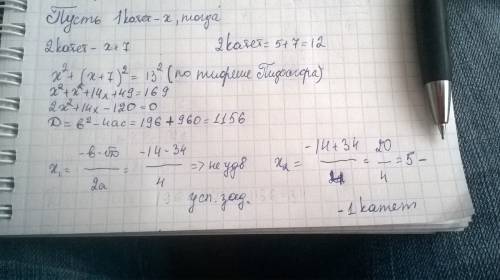 Пусть 1 катет - x, тогда
2 катет - x+7 2 катет = 5+7=12
x² + (x+7)² = 13² (по теореме Пифагора)
x²+x²+14x+49=169
2x²+14x-120=0
D = b²-4ac = 196+960=1156
x₁ = (-b-√D)/2a = (-14-34)/4 => не удв. усл. зад.
x₂ = (-14+34)/4 = 20/4 = 5 -
- 1 катет